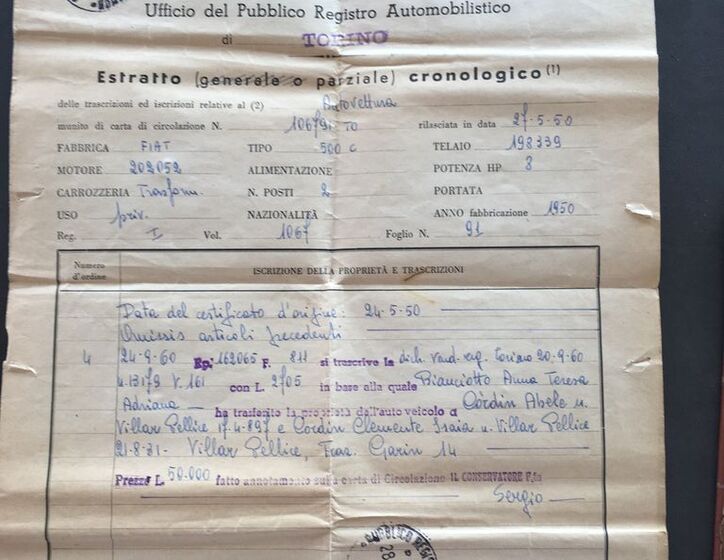 Ufficio del Pubblico Registro Automobilistico
di TORINO
Estratto (generale o parziale) cronologico (1)
delle trascrizioni ed iscrizioni relative al (2) Autovettura
munito di carta di circolazione N. 106791 TO rilasciata in data 27-5-50
FABBRICA FIAT TIPO 500 C TELAIO 198339
MOTORE 202052 ALIMENTAZIONE POTENZA HP 3
CARROZZERIA Trasform. N. POSTI 2 PORTATA
USO priv. NAZIONALITÀ ANNO fabbricazione 1950
Reg. I Vol. 1067 Foglio N. 91
Numero d'ordine ISCRIZIONE DELLA PROPRIETÀ E TRASCRIZIONI
Data del certificato d'origine: 24-5-50
Omissis articoli precedenti
4 24-9-60 Rp. 162065 F. 811 si trascrive la dich. vend. Torino 20-9-60
n. 13179 V. 161 con L. 2705 in base alla quale Bianciotto Anna Teresa
Adriana ha trasferito la proprietà dall'auto veicolo a Cordin Abele n.
Villar Pellice 17-4-897 e Cordin Clemente Isaia n. Villar Pellice
21-8-31 - Villar Pellice, Fraz. Garin 14
Prezzo L. 50.000 fatto annotamento sulla carta di Circolazione IL CONSERVATORE F.to
Sergio
PUBBLICO REGIS
28